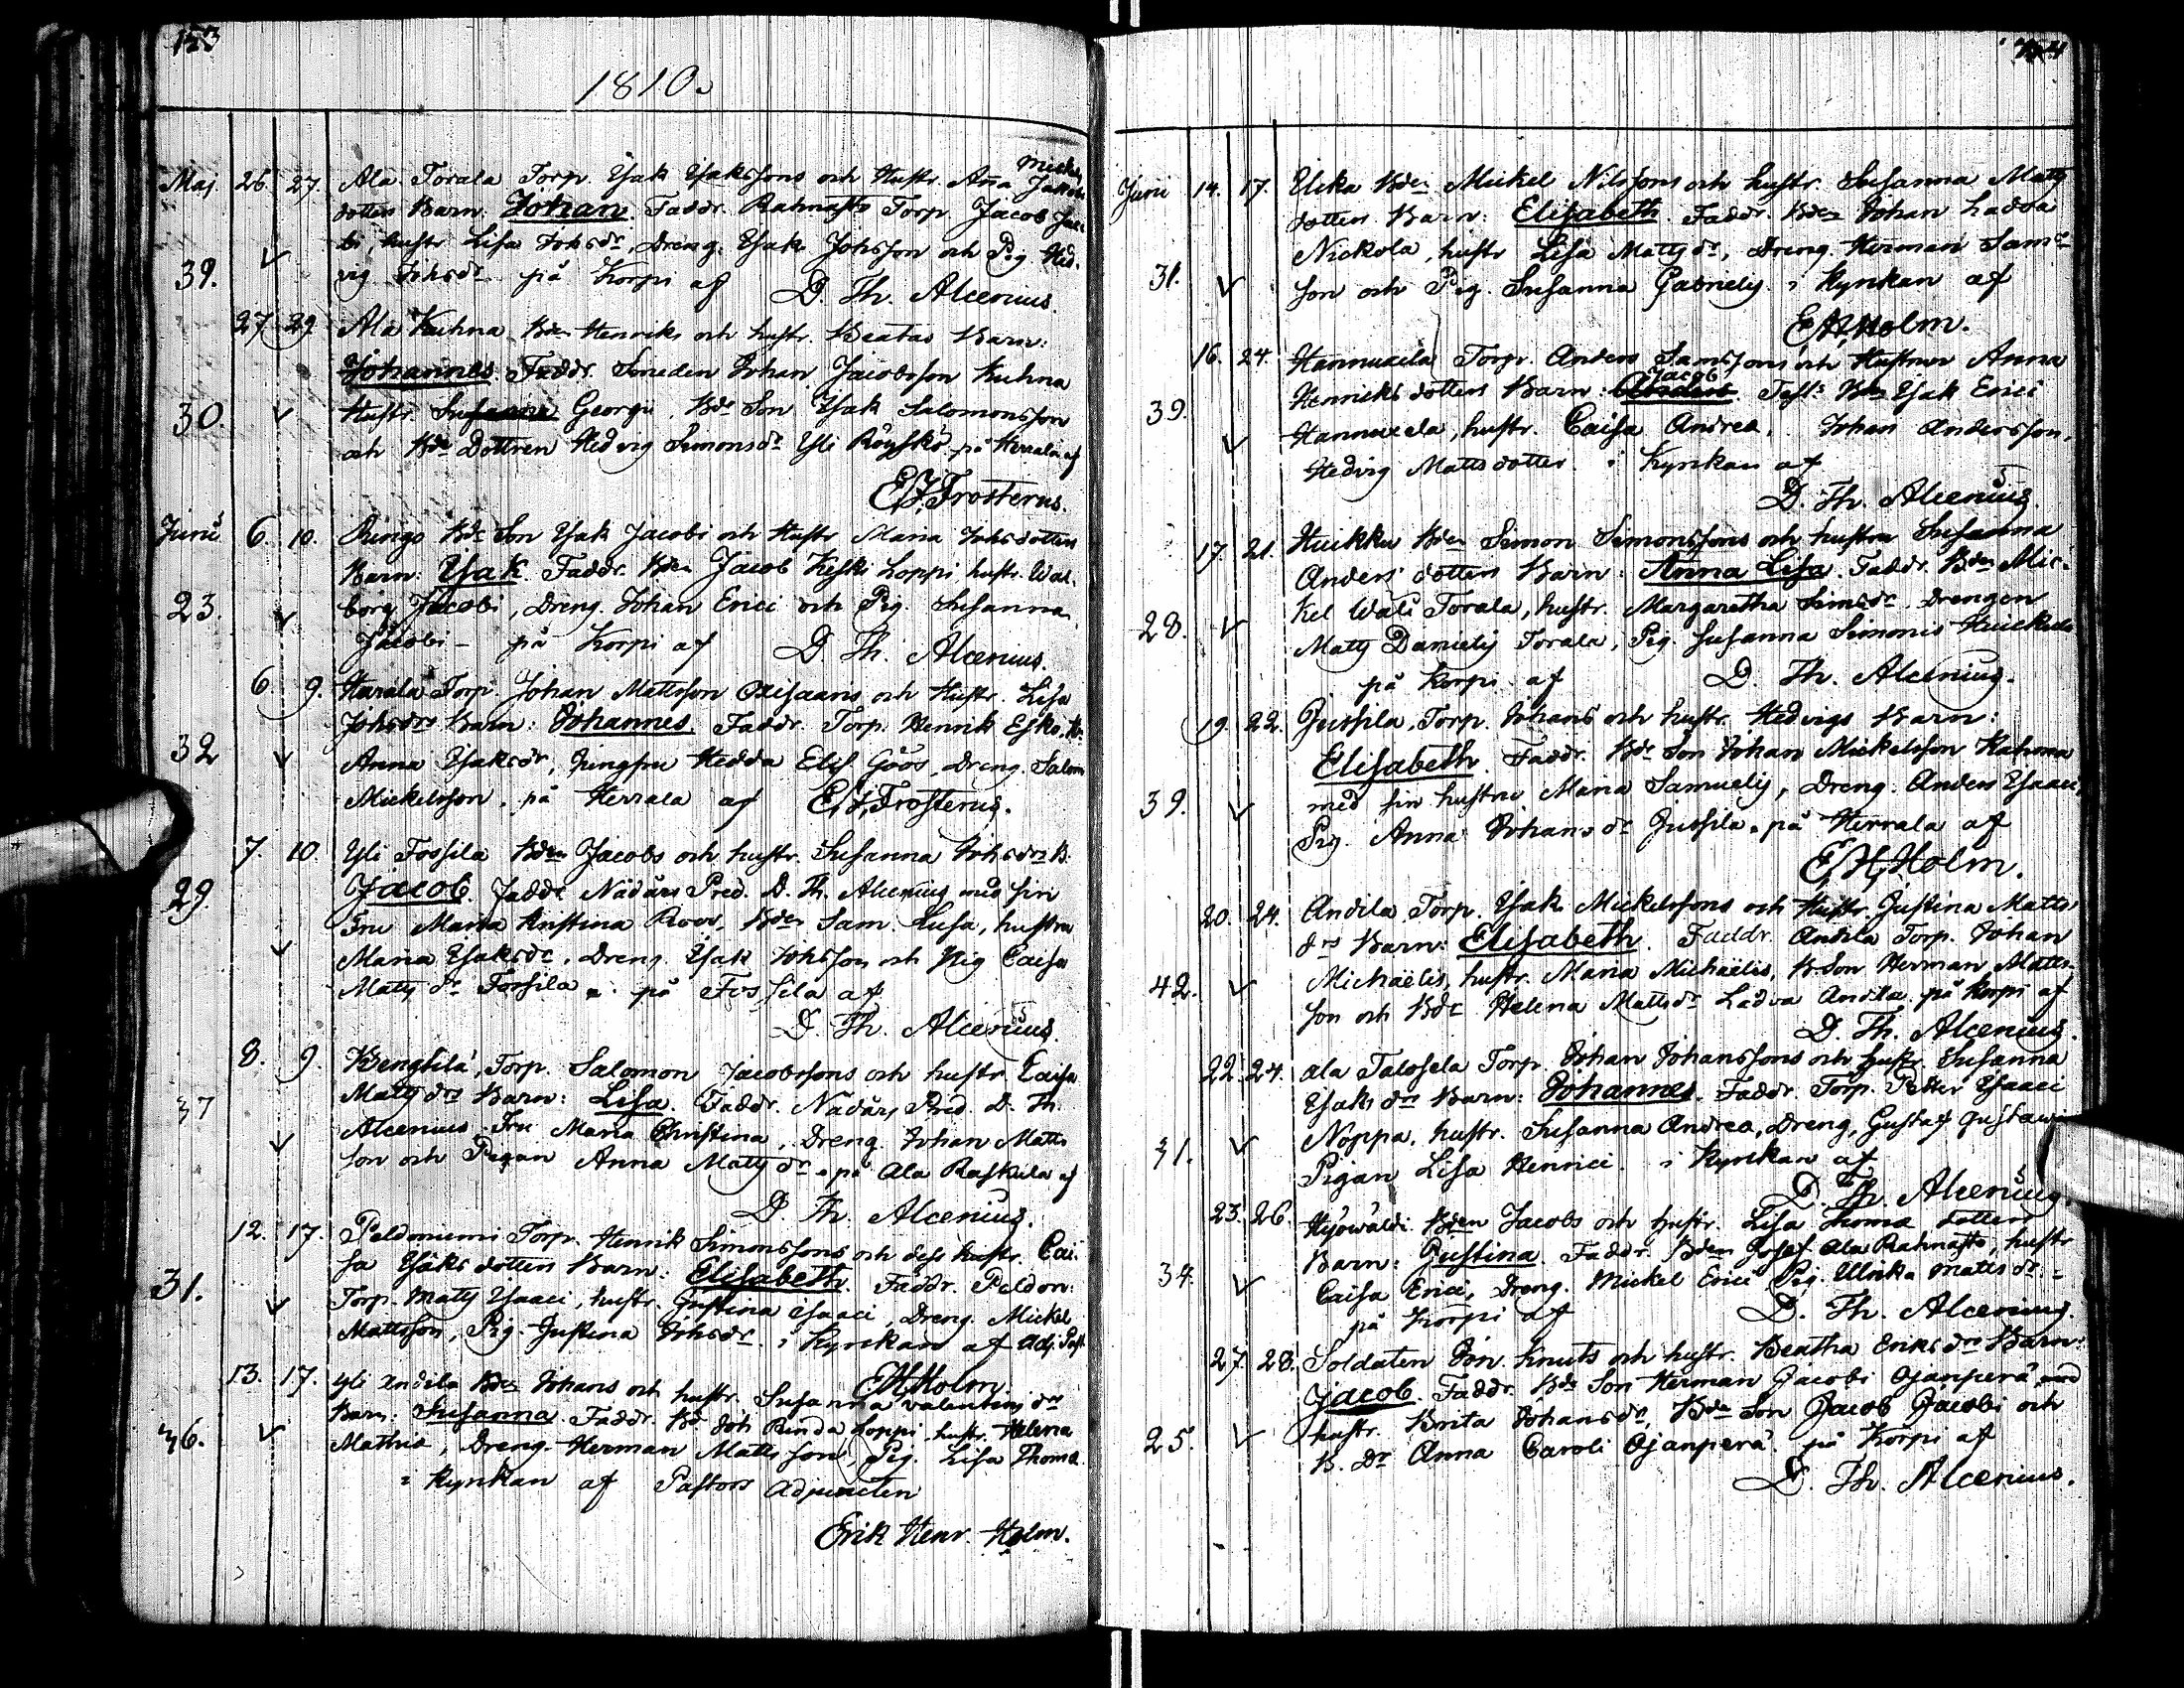 153
1810.
Maj. 26. 27. Ala Torala Torp. Isak Isakssons och Hustr. Anña
dotters Barn: Johan. Faddr. Rahnasto Torp. Jacob
bi, hustr Lisa Johsdr, Dreng. Isak Johsson och Pig. Hed-
39. vig Johsdr på Korpi af D. Th. Alcenius.
27. 29. Ala Kuhna Bdn Henriks och hustr. Beatas Barn:
Johannes. Faddr. Smeden Johan Jacobsson Kuhna
30. Hustr. Susanna Georgii, Bde Son Isak Salomonsson
och Bde Dottren Hedvig Simonsdr Yli Röyskö på Herrala af
E. J. Frosterus.
Junii 6. 10. Ringo Bde Son Isak Jacobi och Hustr Maria Johsdotters
Barn: Isak. Faddr. Bdn Jacob Keski Loppi, hustr. Wal-
23. borg Jacobi, Dreng. Johan Erici och Pig. Susanna
Jacobi – på Korpi af D. Th. Alcenius.
6. 9. Harala Torp. Johan Mattsson och Hustr. Lisa
Johsdrs Barn: Johannes. Faddr. Torp. Henrik
32 Anna Isaksdr, Jungfru Hedda Elis Göös, Dreng. Salom
Mickelsson. på Herrala af E. J. Frosterus.
7. 10. Yli Fossila Bdn Jacobs och hustr. Susanna Johsdrs B.
29. Jacob. Faddr. Nådårs Pred. D. Th. Alcenius med sin
Fru Maria Kristina Roos, Bdn Sam. Lusa, hustru
Maria Isaksdr, Dreng. Isak Johsson och Pig Caisa
Matts dr Fossila. på Fossila af
D. Th. Alcenius.
8. 9. Bengtilä, Torp. Salomon Jacobssons och hustr. Caisa
37 Matts drs Barn: Lisa. Faddr. Nådårs Pred. D. Th.
Alcenius. Fru Maria Christina, Dreng. Johan Matts
son och Pigan Anna Matts dr. på Ala Raskula af
D. Th. Alcenius.
12. 17. Peldoniemi Torp. Henrik Simonssons och dess hustr. Cai-
31. sa Isaks dotters Barn: Elisabeth. Faddr. Peldon:
Torp. Matts Isaaci, hustr. Justina Isaaci, Dreng. Mickel
Mattsson, Pig. Justina Johsdr. i Kyrckan af Adj. Past.
E H Holm.
13. 17. Yli Andila Bdn Johans och hustr. Susanna Valentins drs
36. Barn: Susanna. Faddr. Bd. Joh Rinda Loppi hustr. Helena
Mathiæ, Dreng. Herman Matts son, Pig. Lisa Thomæ
i Kyrkan af Pastors Adjuncten
Erik Henr. Holm.
Junii 14. 17. Bdn Mickel Nilssons och hustr. Susanna Matts
dotters Barn: Elisabeth. Faddr. Bdn Johan Ladva
Nickola, hustr Lisa Matts dr, Dreng. Herman Sams
31. son och Pig. Susanna Gabrielis i Kyrkan af
E H Holm.
16. 24. Hannuxela Torp. Anders Samssons och Hustrus Anna
Jacob
39. Henricks dotters Barn: Anders. Test: Bdn Isak Erici
Hannuxela, hustr. Caisa Andreæ, Johan Andersson,
Hedvig Mattsdotter. i Kyrkan af
D. Th. Alcenius.
17. 21. Huikku Bdn Simon Simonssons och hustru Susanna
Anders dotters Barn: Anna Lisa. Faddr. Bdn Mic-
28. kel Wäli Torala, hustr. Margaretha Simsdr Drengen
Matts Danielis Torala, Pig. Susanna Simonis
på Korpi af D. Th. Alcenius.
19. 22. Jussila, Torp. Johans och hustr. Hedvigs Barn:
Elisabeth. Faddr. Bde Son Johan Mickelsson
39. med sin hustru Maria Samuelis, Dreng. Anders Isaaci,
Pig. Anna Johans dr Jussila. på Herrala af
E. H. Holm.
20. 24. Andila Torp. Isak Mickelssons och Hustr. Justina Matts-
drs Barn: Elisabeth. Faddr. Andila Torp. Johan
42. Michaëlis, hustr. Maria Michaëlis, B. Son Herman Matts-
son och Bdr Helena Mattsdr Ladva Andila. på Korpi af
D. Th. Alcenius.
22. 24. Ala Talosela Torp. Johan Johanssons och hustr. Susanna
Isaks drs Barn: Johannes. Faddr. Torp. Petter Isaaci
31. Noppa, hustr. Susanna Andreæ, Dreng. Gustaf
Pigan Lisa Henrici. i Kyrckan af
D. Th. Alcenius.
23. 26. Bdn Jacobs och hustr. Lisa Thomæ dotters
34. Barn: Justina. Faddr. Bdn Josef Ala Rahnasto, hustr
Caisa Erici, Dreng. Mickel Erici Pig. Ulrika Matts dr. –
på Korpi af D. Th. Alcenius.
27. 28. Soldaten Jon. Knuts och hustr. Beatha Eriks drs Barn:
Jacob. Faddr. Bde Son Herman Jacobi Ojanperä med
25. hustr. Brita Johansdr, Bde Son Jacob Jacobi och
B. Dr Anna Caroli Ojanperä. på Korpi af
D. Th. Alcenius.